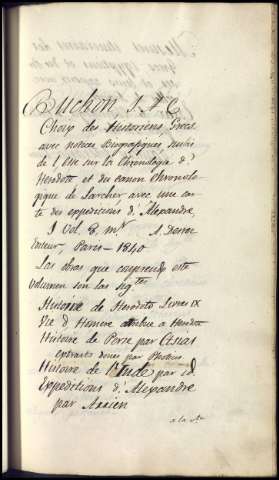 Buchon J. A. C.
Choix des Historiens Grecs
avec notices Biografiques, suivie
de l'Esse sur la Chronologie d'
Herodote et du canon Chronolo-
gique de Larcher, avec une car-
te des expeditions d'Alexandre,
1 Vol. 8. m.
teur, Paris - 1840
Las obras que comprende este
volumen son las sigtes
Histoire de Herodoto Livres IX
Vie d Homere atribue a Herodote
Histoire de Perse par Ctesias
extraits donés par Photius
Histoire de l'Inde par id
Expeditions d'Alexandre
par Arrien
a la Vta